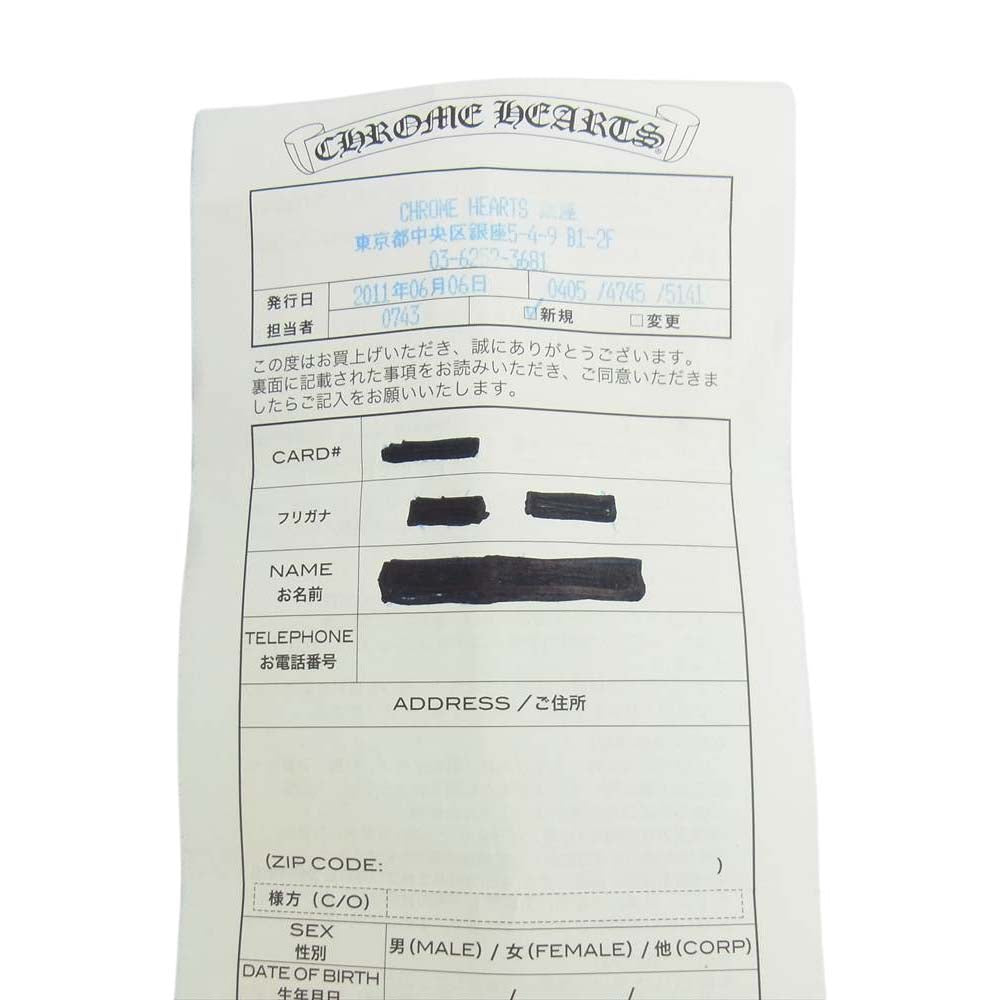 CHROME HEARTS®
CHROME HEARTS 座
東京都中央区銀座5-4-9 B1-2F
発行日 2011年06月06日 0405 /4745 /5141
担当者 0743 ☑新規 □変更
この度はお買上げいただき、誠にありがとうございます。
裏面に記載された事項をお読みいただき、ご同意いただきま
したらご記入をお願いいたします。
CARD#
フリガナ
NAME
お名前
TELEPHONE
お電話番号
ADDRESS /ご住所
(ZIP CODE: )
様方 (C/O)
SEX
性別
男(MALE) / 女(FEMALE) / 他(CORP)
DATE OF BIRTH
生年月日 / /